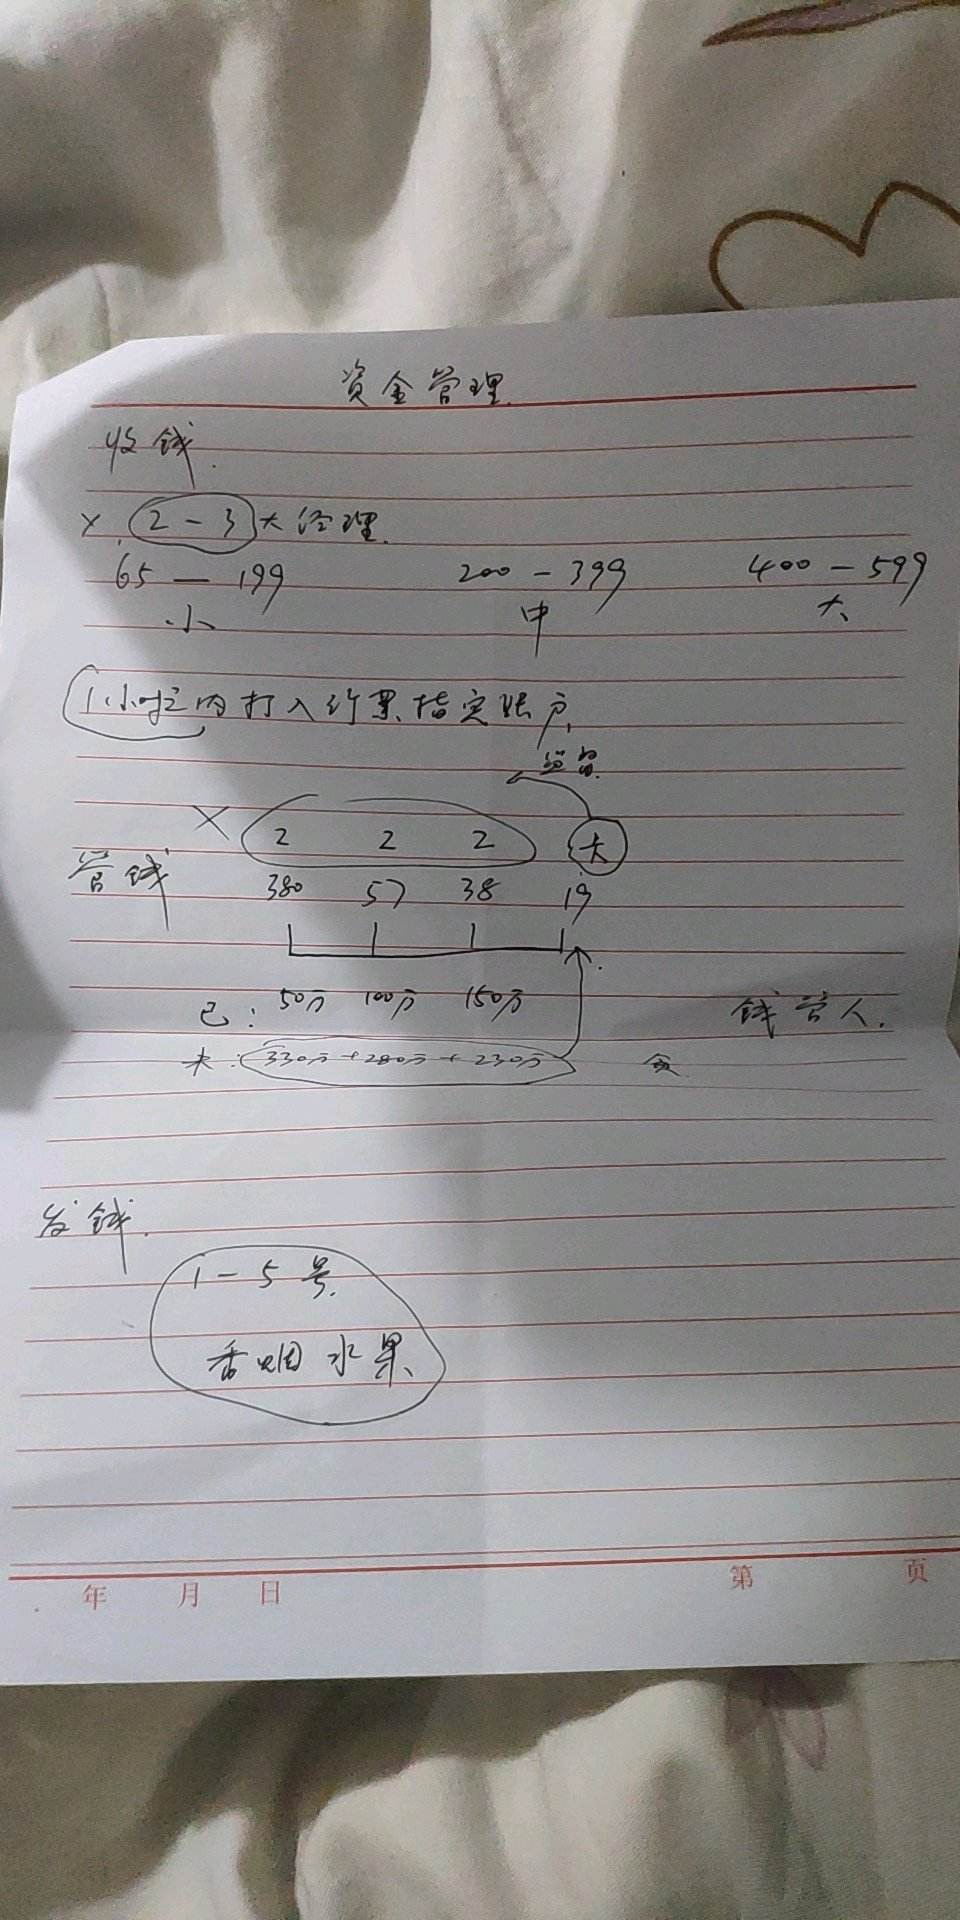 资金管理.
收钱.
× 2-3大经理.
65 — 199 200 - 399 400 - 599
小 中 大
1小时之内打入行业指定账户.
监督
× 2 2 2 大
管钱 380 57 38 19
已: 50万 100万 150万 钱管人.
未: 330万+280万+230万
发钱.
1-5号.
香烟水果
年 月 日 第 页